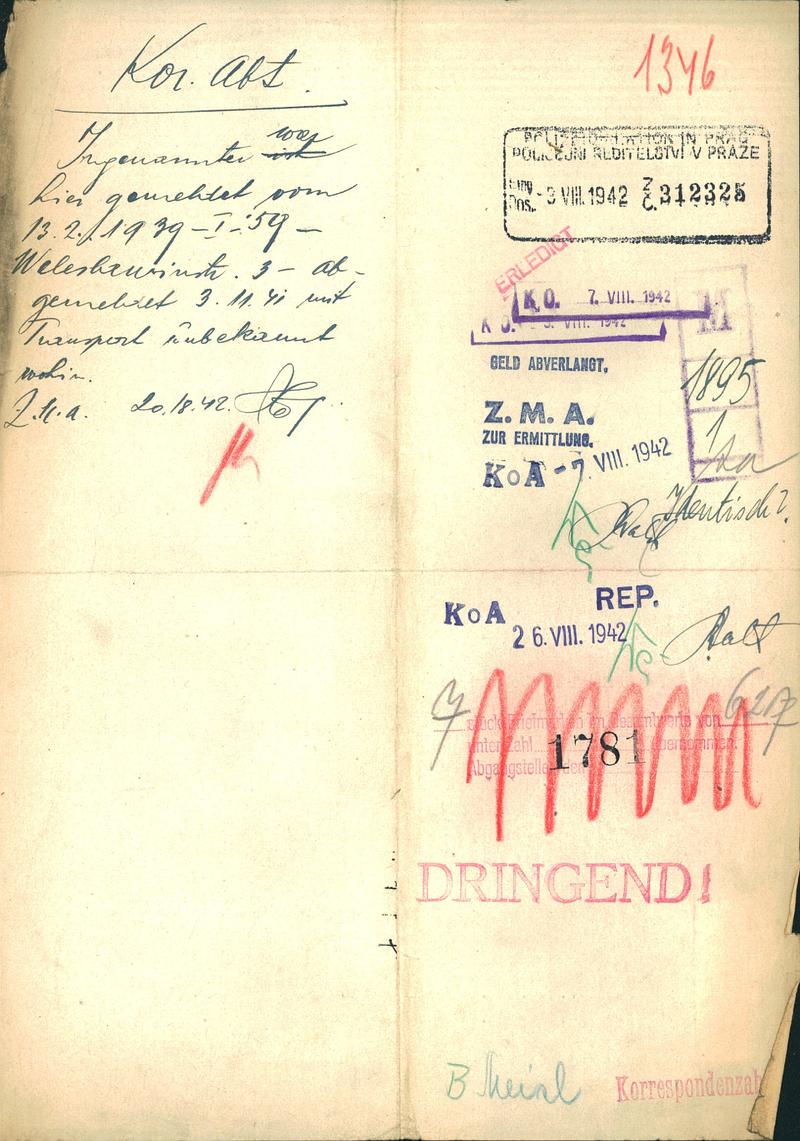 Kor. Abt.
Ingenannter war ist
hier gemeldet vom
13.2. 1939 – I – 59 –
3 – ab-
gemeldet 3.11.41 mit
Transport unbekannt
wohin.
Z.M.a. 20.18.42.
1346
POLIZEIDIREKTION IN PRAG
POLICEJNÍ ŘEDITELSTVÍ V PRAZE
Eing.
Dos. -3 VIII. 1942 Z Č. 312325
ERLEDIGT
K.O. 7. VIII. 1942
K.O. VIII. 1942
M
GELD ABVERLANGT.
1895
1
Z. M. A.
ZUR ERMITTLUNG.
KoA -7. VIII. 1942
Identisch?
KoA REP.
26. VIII. 1942
7 Stück Briefmarken im Gesamtwerte von
unter Zahl übernommen.
Abgangstelle den
1781
DRINGEND!
B Meisl
Korrespondenzab